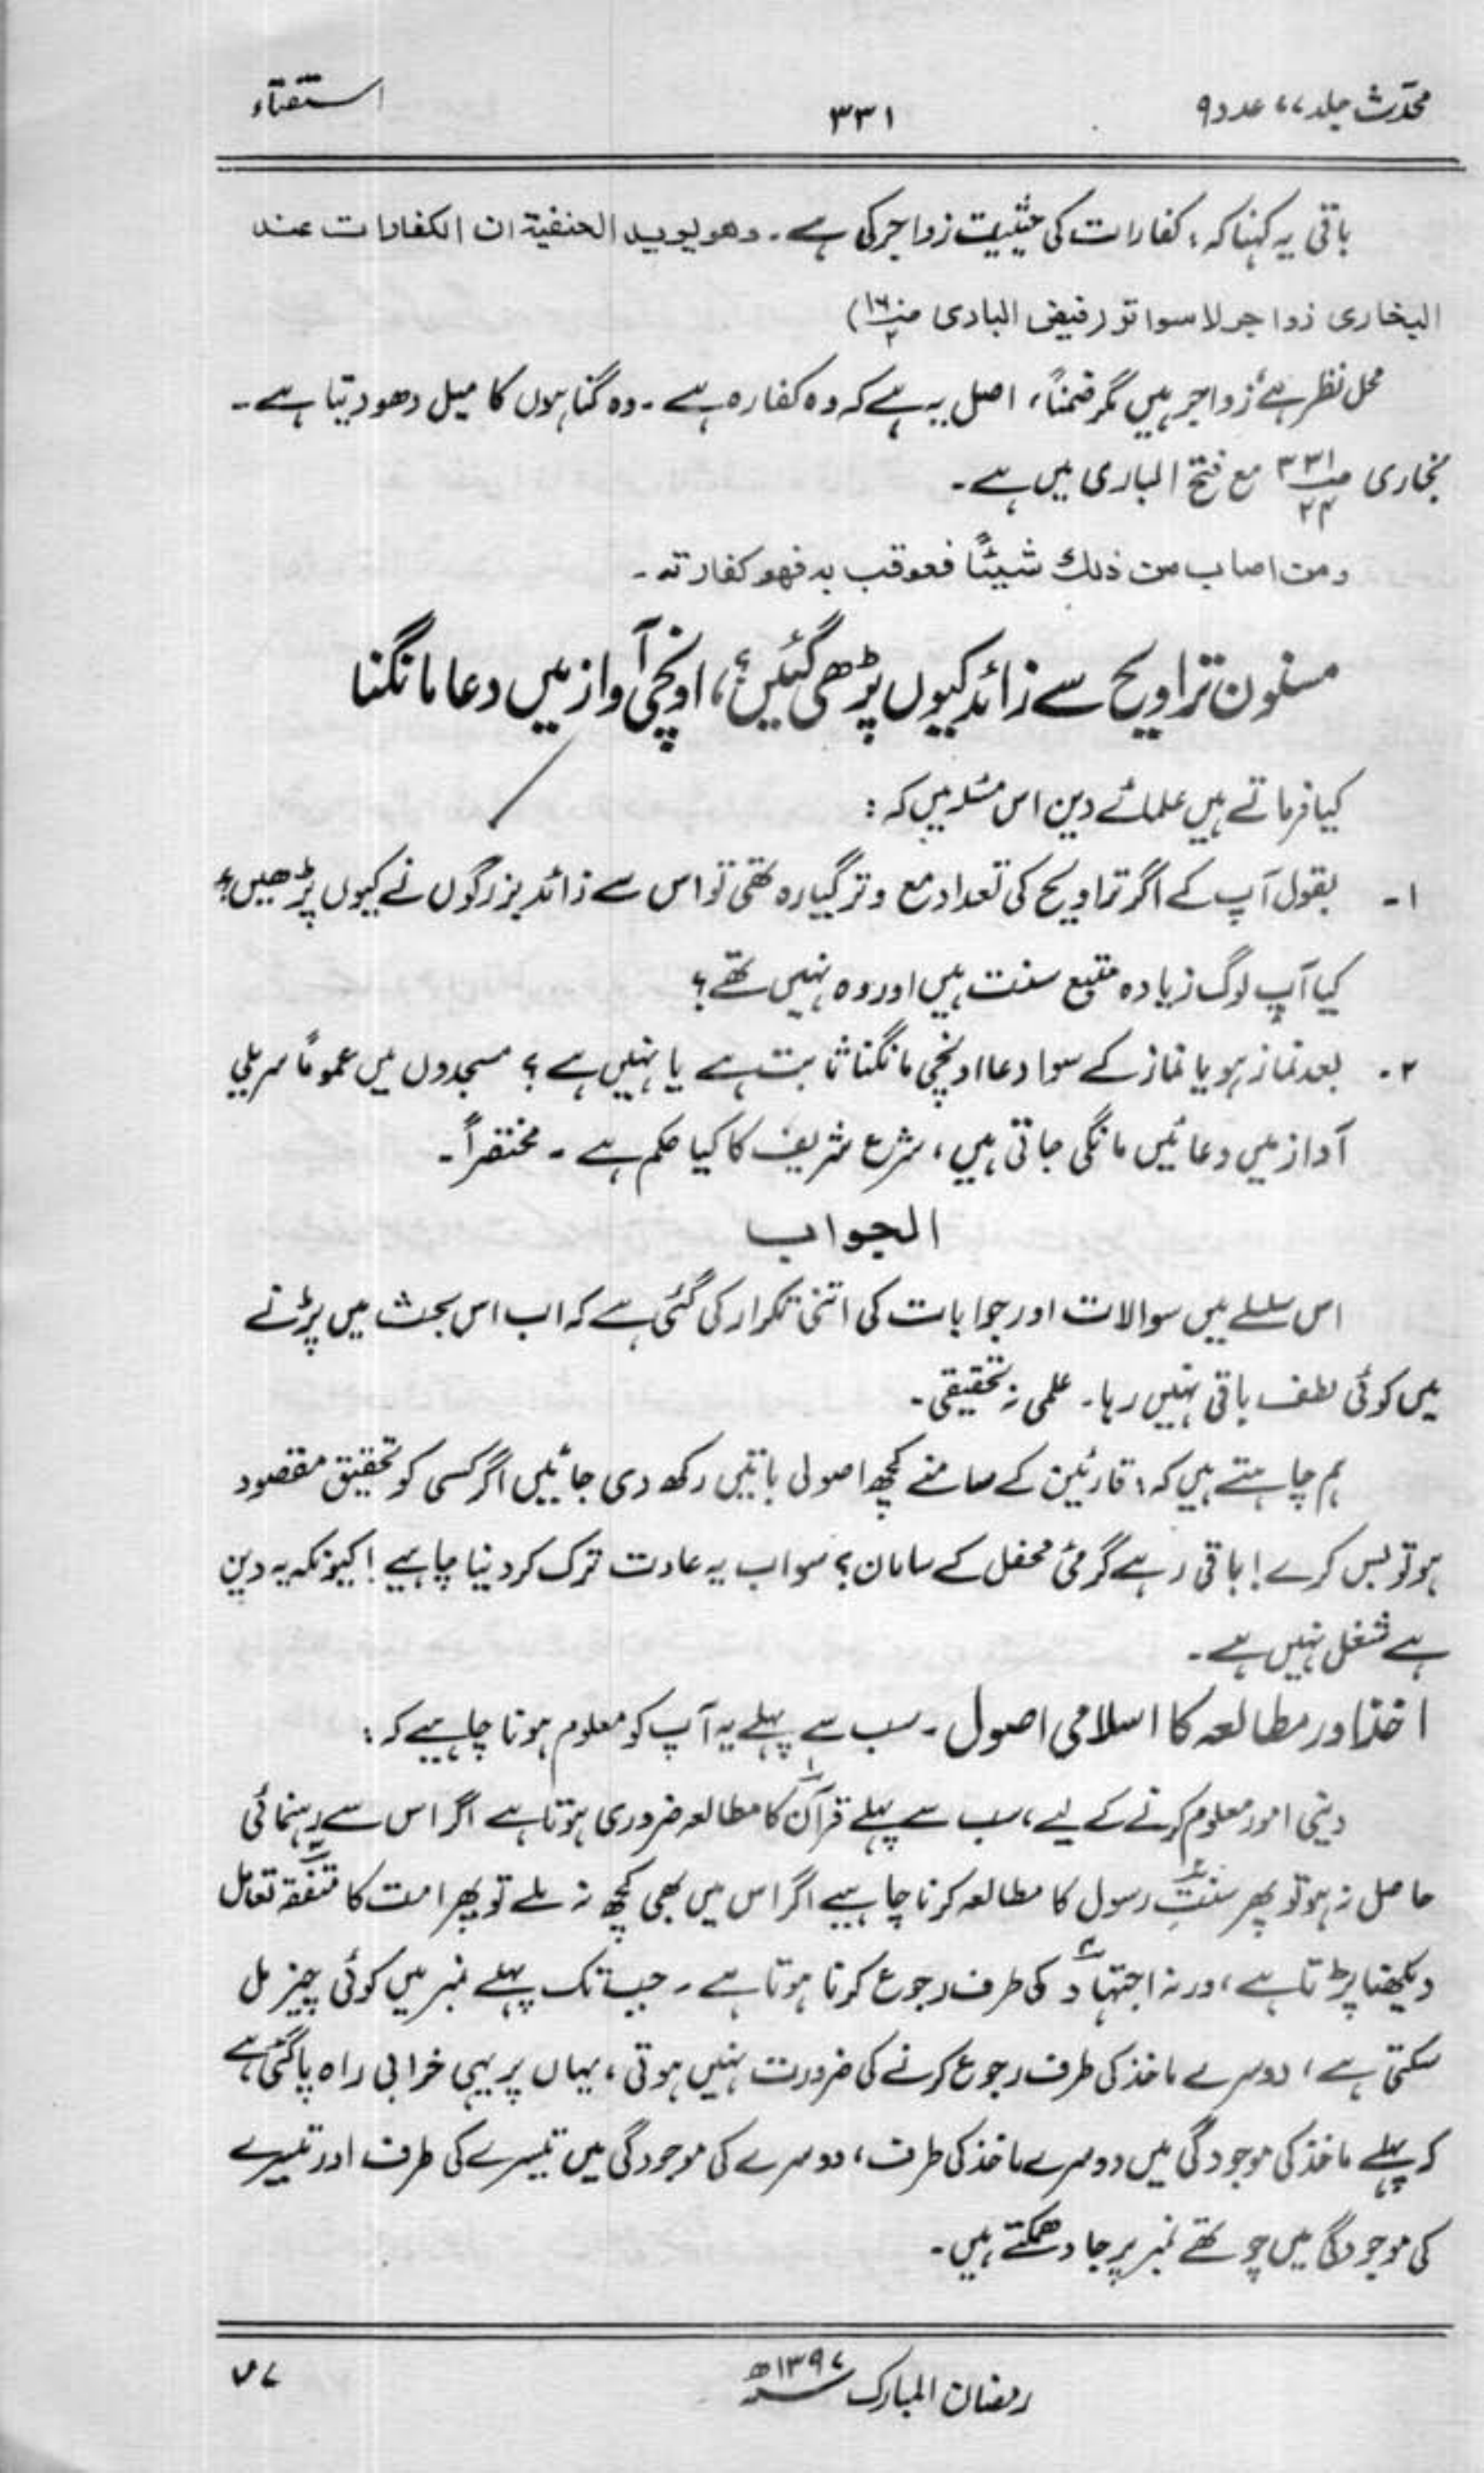 محدّث جلد ۷، عدد ۹ ۳۳۱ استفتاء
باقی یہ کہنا کہ: کفارات کی حیثیت زواجر کی ہے۔ وھو یوید الحنفیۃ ان الکفارات عند
البخاری زواجر لا سواتر (فیض الباری
محل نظر ہے، زواجر ہیں مگر ضمناً، اصل یہ ہے کہ وہ کفارہ ہے۔ وہ گناہوں کا میل دھو دیتا ہے۔
بخاری مع فتح الباری میں ہے۔
ومن اصاب من ذلك شیئًا فعوقب بہ فھو کفارتہ۔
مسنون تراویح سے زائد کیوں پڑھی گئیں؟، اونچی آواز میں دعا مانگنا
کیا فرماتے ہیں علمائے دین اس مسئلہ میں کہ:
۱۔ بقول آپ کے اگر تراویح کی تعداد مع وتر گیارہ تھی تو اس سے زائد بزرگوں نے کیوں پڑھیں؟
کیا آپ لوگ زیادہ متبع سنت ہیں اور وہ نہیں تھے؟
۲۔ بعد نماز ہو یا نماز کے سوا دعا اونچی مانگنا ثابت ہے یا نہیں ہے؟ مسجدوں میں عموماً سریلی
آواز میں دعائیں مانگی جاتی ہیں، شرع شریف کا کیا حکم ہے۔ مختصراً۔
الجواب
اس سلسلے میں سوالات اور جوابات کی اتنی تکرار کی گئی ہے کہ اب اس بحث میں پڑنے
میں کوئی لطف باقی نہیں رہا۔ علمی نہ تحقیقی۔
ہم چاہتے ہیں کہ: قارئین کے سامنے کچھ اصولی باتیں رکھ دی جائیں اگر کسی کو تحقیق مقصود
ہو تو بس کرے! باقی رہے گرمئی محفل کے سامان؟ سو اب یہ عادت ترک کر دینا چاہیے! کیونکہ یہ دین
ہے شغل نہیں ہے۔
اخذ اور مطالعہ کا اسلامی اصول۔ سب سے پہلے یہ آپ کو معلوم ہونا چاہیے کہ:
دینی امور معلوم کرنے کے لیے، سب سے پہلے قرآن کا مطالعہ ضروری ہوتا ہے اگر اس سے رہنمائی
حاصل نہ ہو تو پھر سنتِ رسول کا مطالعہ کرنا چاہیے اگر اس میں بھی کچھ نہ ملے تو پھر امت کا متفقہ تعامل
دیکھنا پڑتا ہے، ورنہ اجتہاد کی طرف رجوع کرنا ہوتا ہے۔ جب تک پہلے نمبر میں کوئی چیز مل
سکتی ہے، دوسرے ماخذ کی طرف رجوع کرنے کی ضرورت نہیں ہوتی، یہاں پر یہی خرابی راہ پا گئی ہے
کہ پہلے ماخذ کی موجودگی میں دوسرے ماخذ کی طرف، دوسرے کی موجودگی میں تیسرے کی طرف اور تیسرے
کی موجودگی میں چوتھے نمبر پر جا دھمکتے ہیں۔
رمضان المبارک ۱۳۹۷ھ